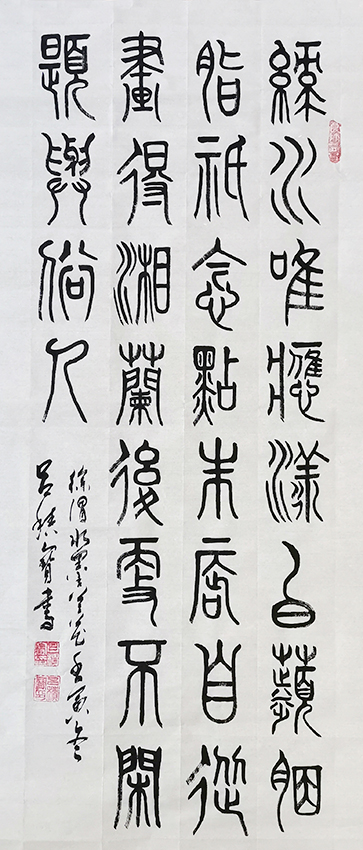 綠水唯應漾白蘋胭
脂祇念點朱唇自從
畫得湘蘭後更不閑
題與俗人
徐渭水墨兰花壬寅冬
呂寶書